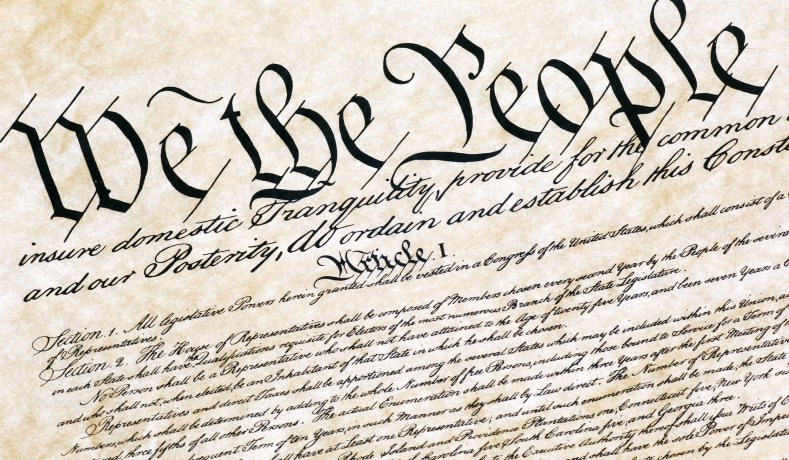 We the People
insure domestic Tranquility, provide for the common
and our Posterity, do ordain and establish this Consti
Article. I.
Section. 1. All legislative Powers herein granted shall be vested in a Congress of the United States, which shall consist of a
of Representatives.
Section. 2. The House of Representatives shall be composed of Members chosen every second Year by the People of the several
in each State shall have the Qualifications requisite for Electors of the most numerous Branch of the State Legislature.
No Person shall be a Representative who shall not have attained to the Age of twenty five Years, and been seven Years a
and who shall not, when elected, be an Inhabitant of that State in which he shall be chosen.
Representatives and direct Taxes shall be apportioned among the several States which may be included within this Union, ac
Numbers, which shall be determined by adding to the whole Number of free Persons, including those bound to Service for a Term of
three fifths of all other Persons. The actual Enumeration shall be made within three Years after the first Meeting of
subsequent Term of ten Years, in such Manner as they shall by Law direct. The Number of Representatives
shall have at Least one Representative; and until such enumeration shall be made, the State
Rhode Island and Providence Plantations one, Connecticut five, New York six
Carolina five, South Carolina five, and Georgia three.
the Executive Authority thereof shall issue Writs of
shall have the sole Power of Impea
chosen by the Legislat